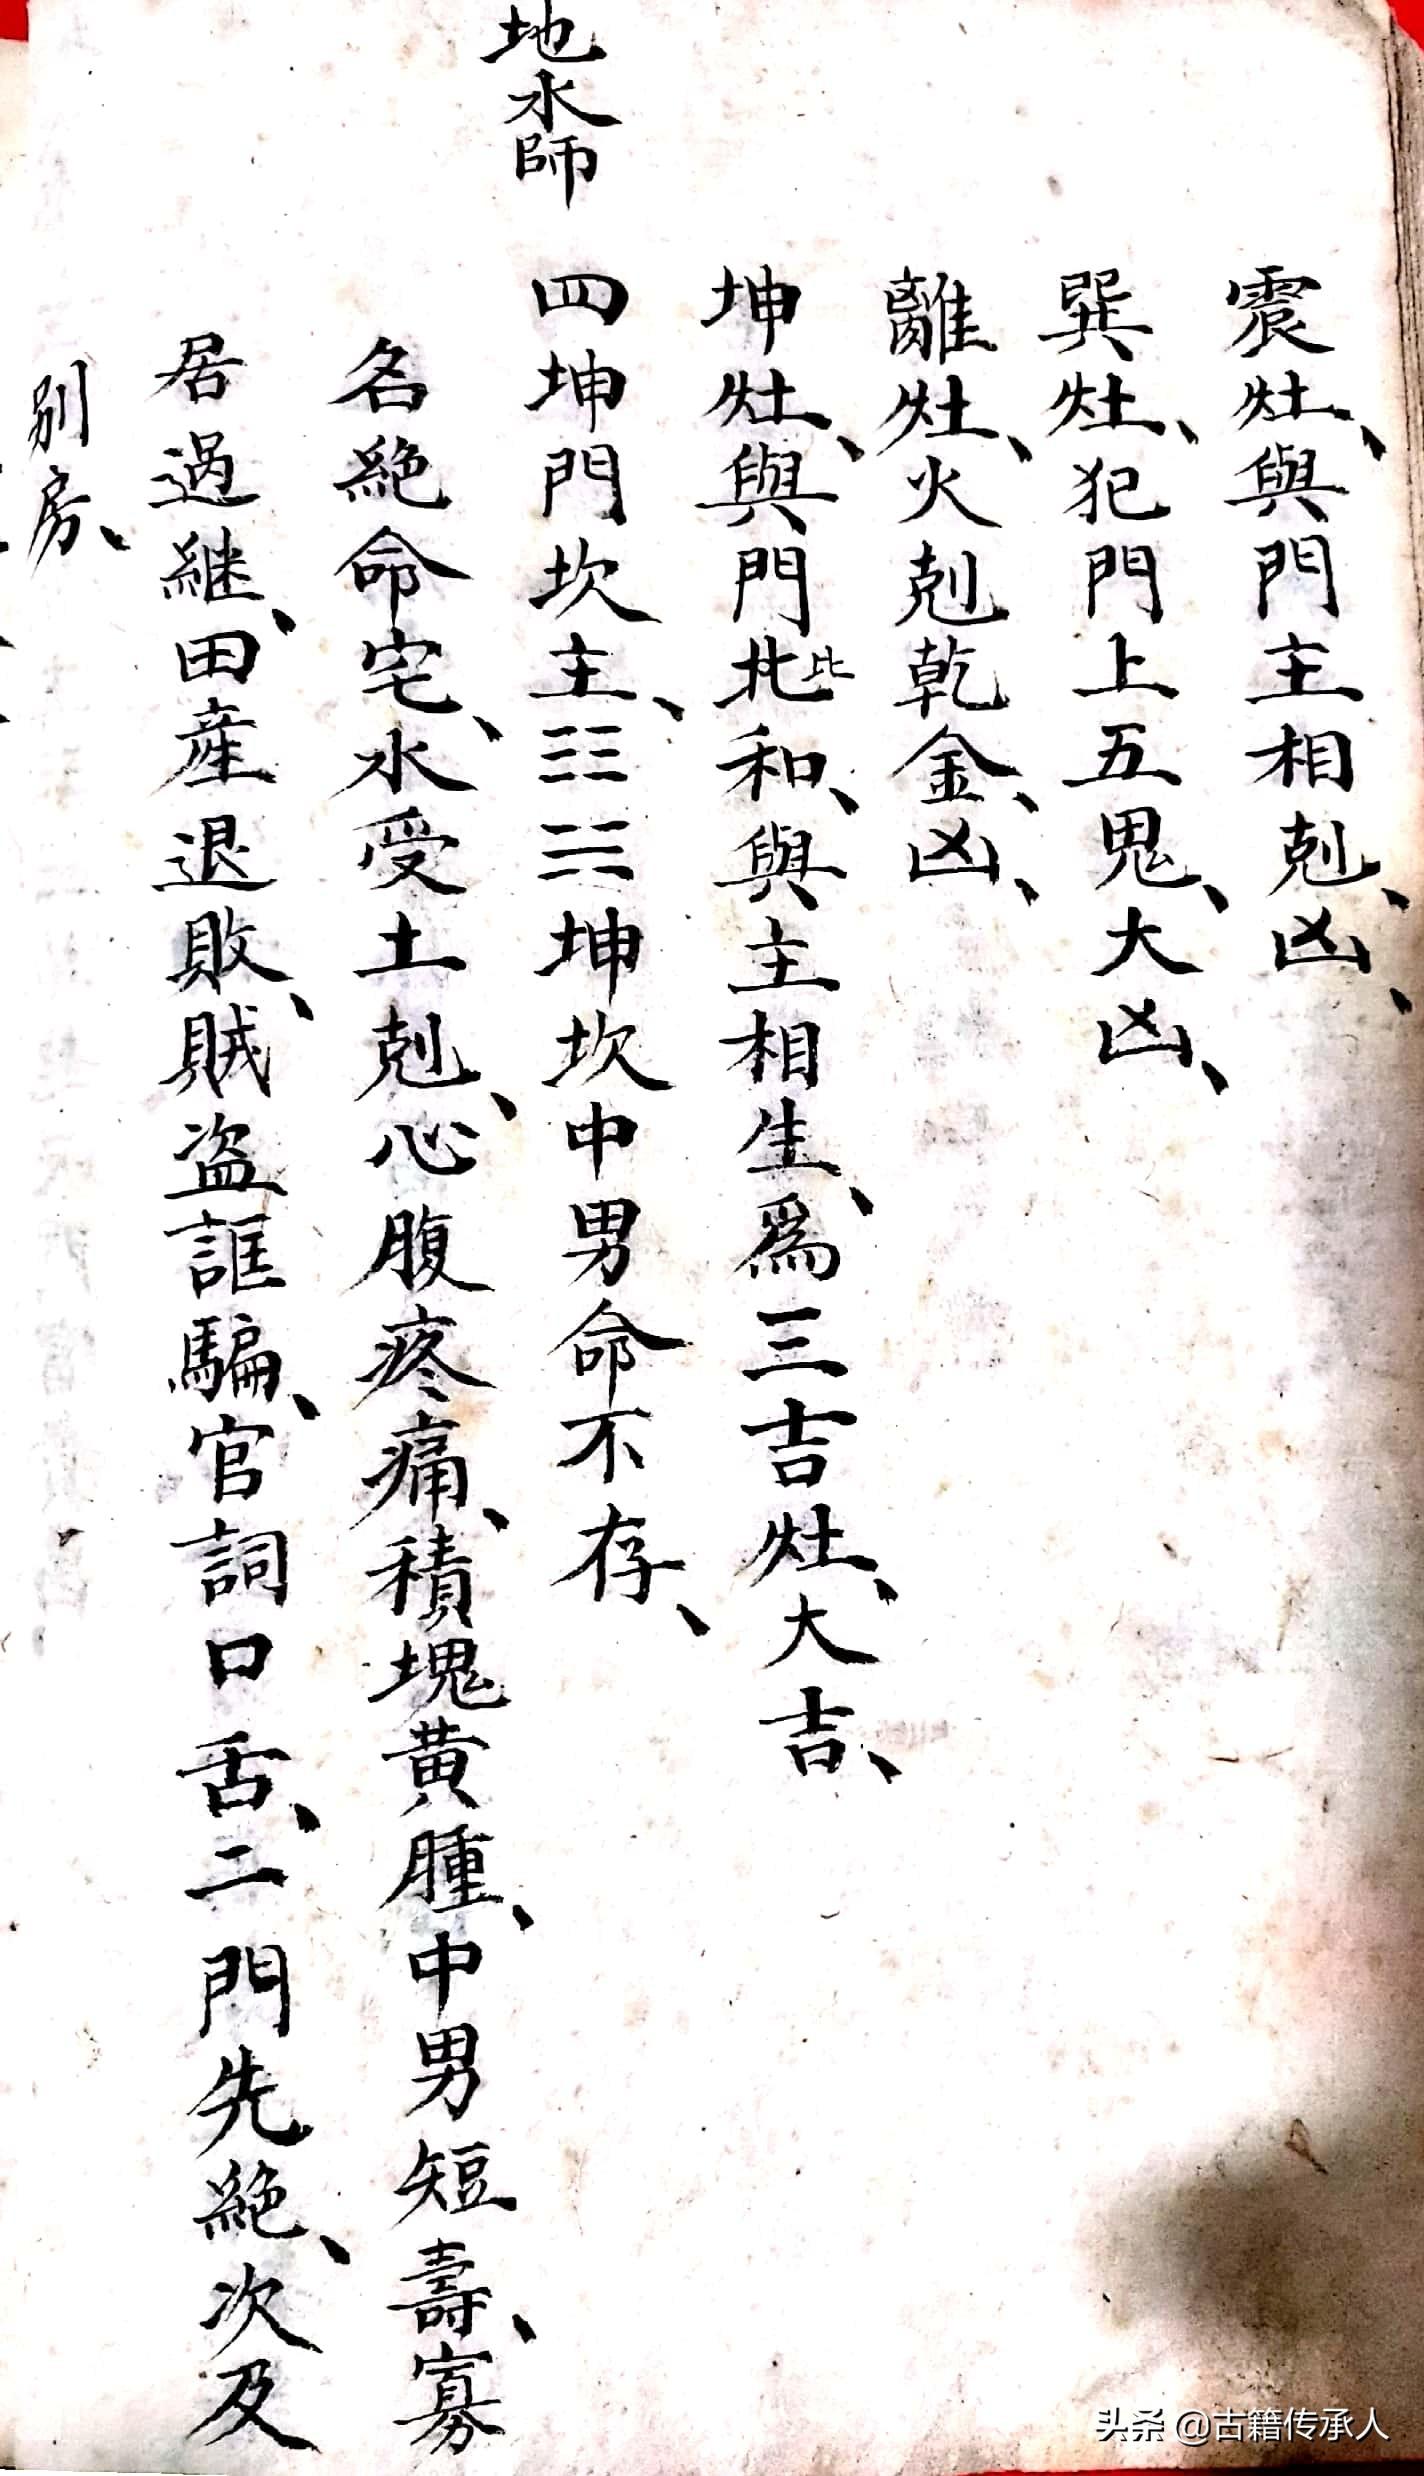 震灶、與門主相剋、凶、
巽灶、犯門上五鬼、大凶、
離灶、火剋乾金、凶、
坤灶、與門北比和、與主相生、為三吉灶、大吉、
地水師
四坤門坎主、☷☵坤坎中男命不存、
名絕命宅、水受土剋、心腹疼痛、積塊黃腫、中男短壽、寡
居過継、田産退敗、賊盗誆騙、官詞口舌、二門先絕、次及
别房、
头条 @古籍传承人